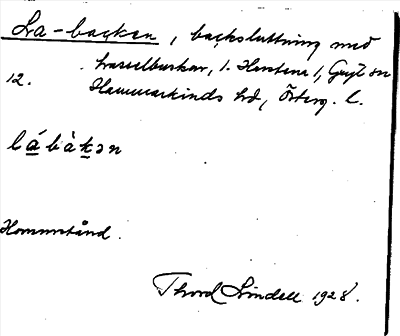 La-backen, backsluttning med
hasselbuskar, 1. Herstena 1, Gryt sn
12. Hammarkinds hd, Österg. l.
lábàkən
Hommstånd.
Thord Lindell 1928.